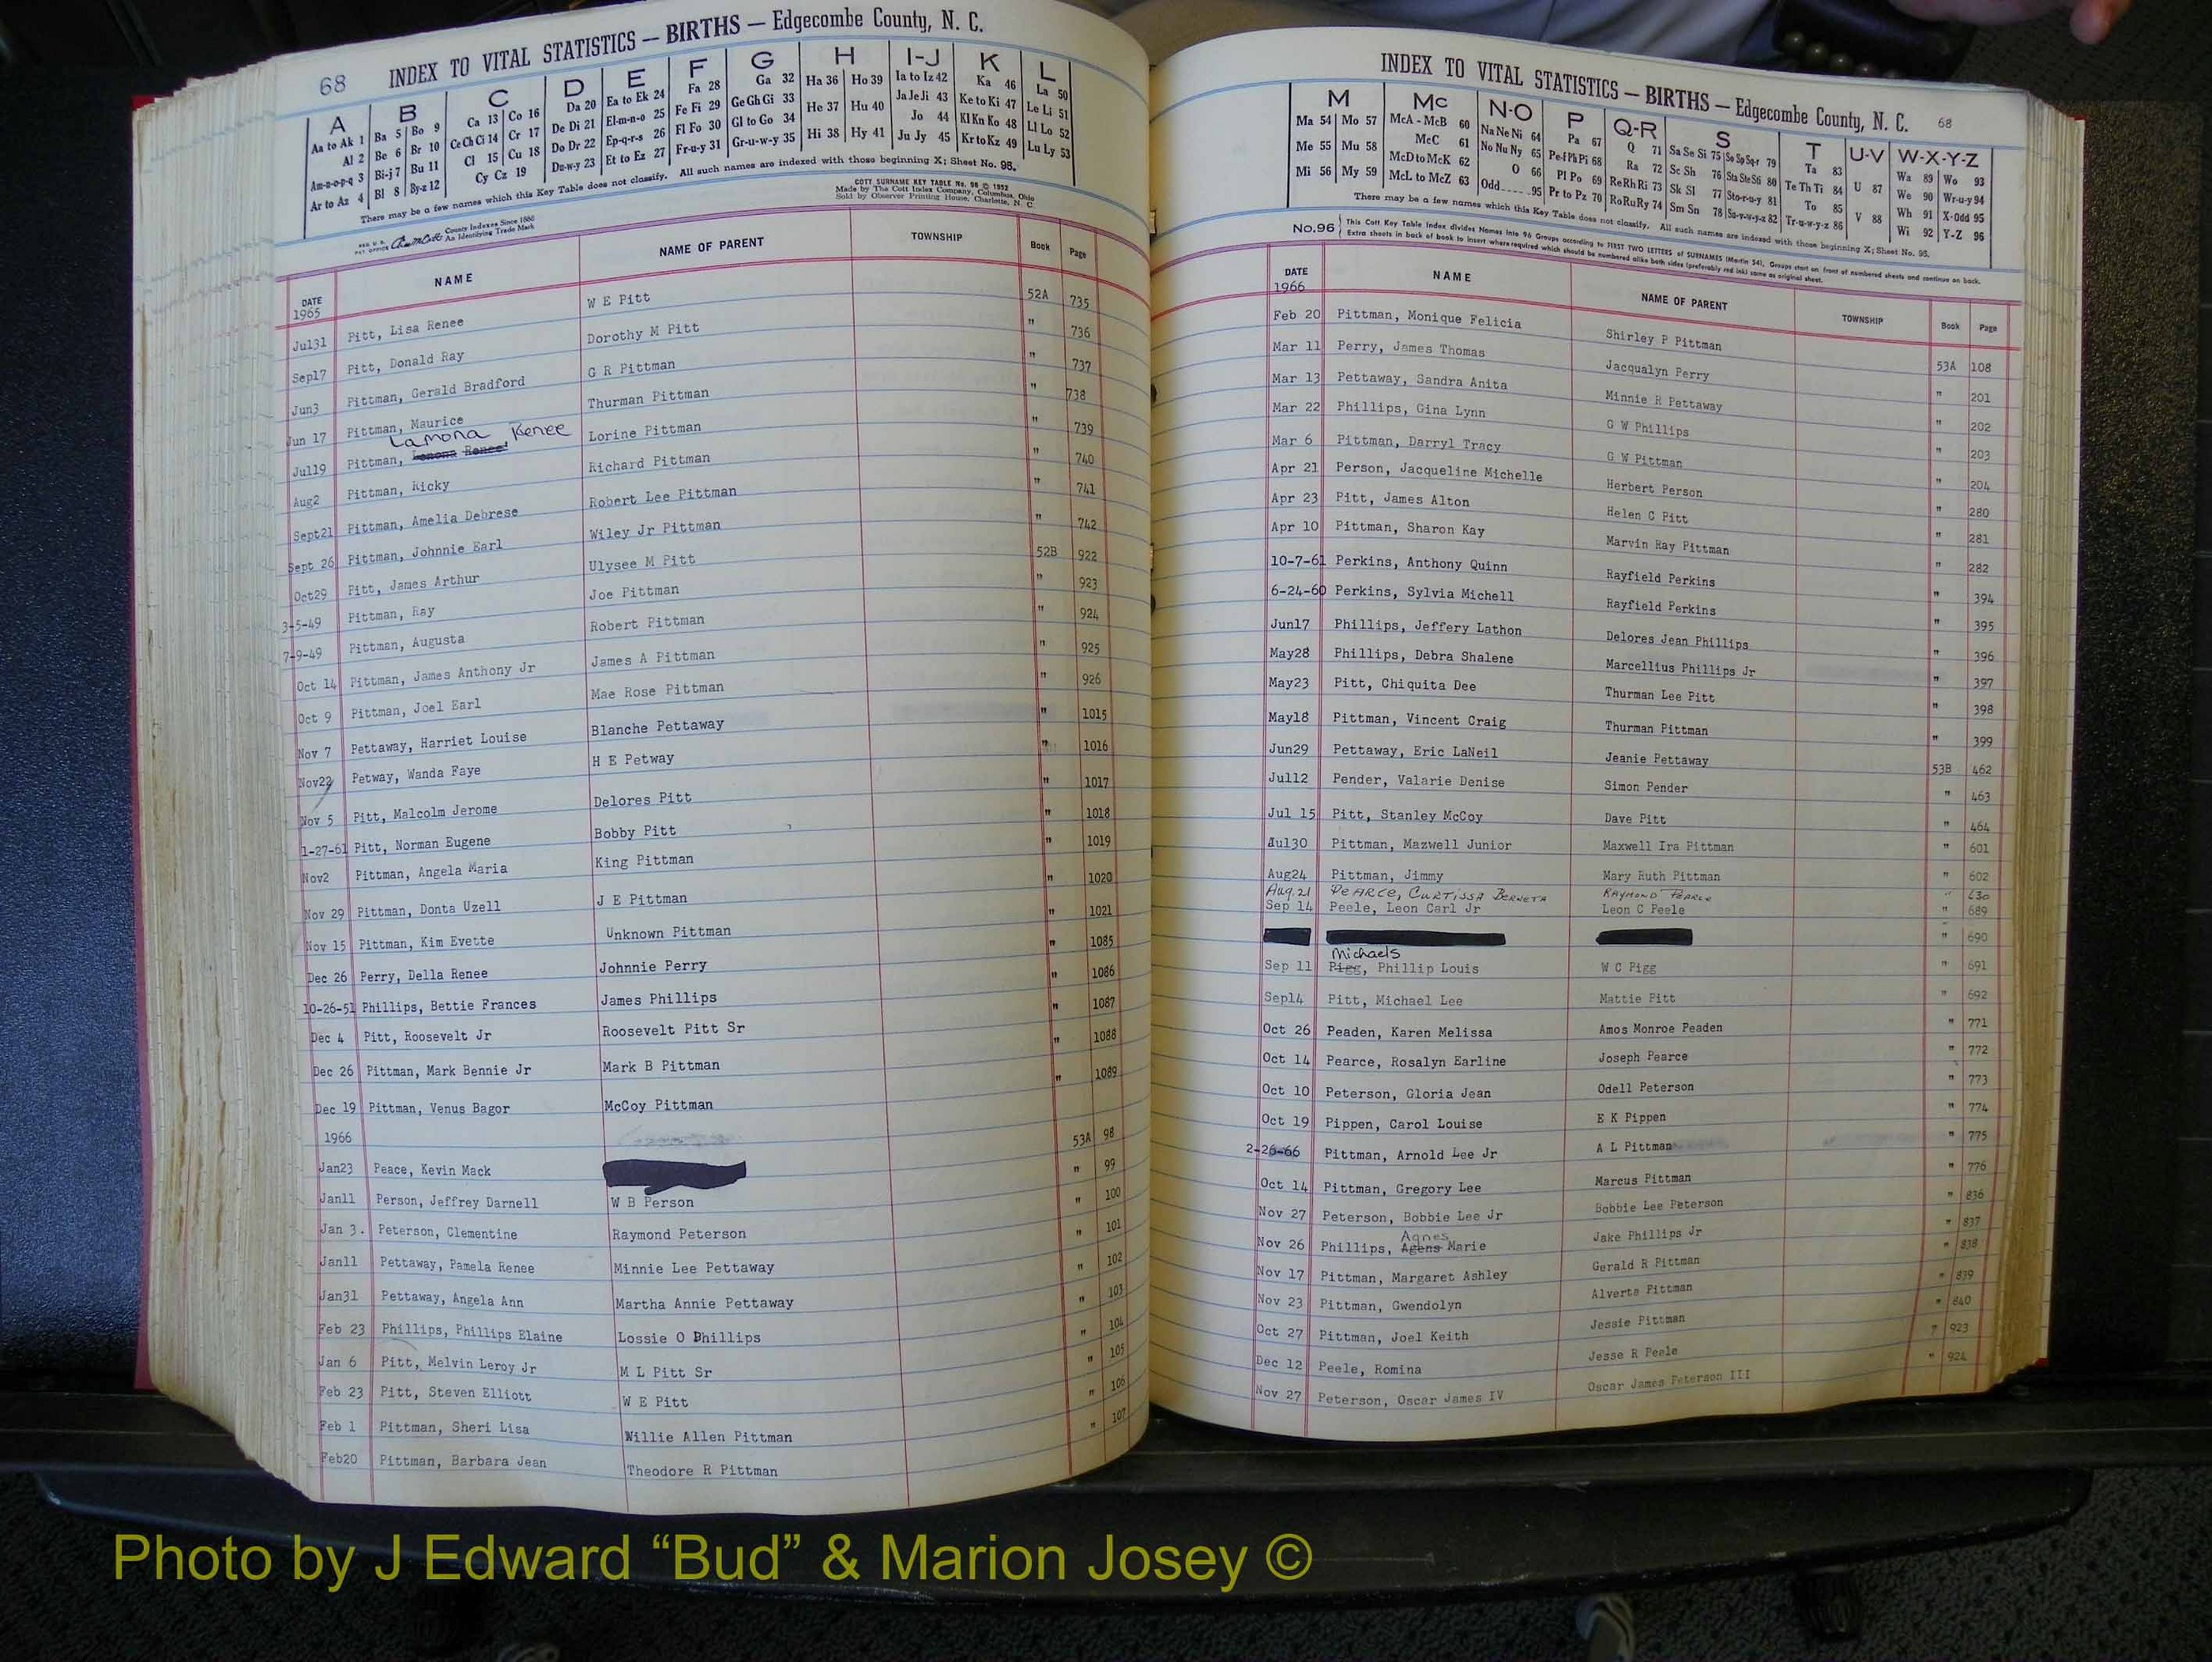 68 INDEX TO VITAL STATISTICS — BIRTHS — Edgecombe County, N. C.
A B C D E F G H I-J K L
Aa to Ak 1 Ba 5 Bo 9 Ca 13 Co 16 Da 20 Ea to Ek 24 Fa 28 Ga 32 Ha 36 Ho 39 Ia to Iz 42 Ka 46 La 50
Al 2 Be 6 Br 10 Ce Ch Ci 14 Cr 17 De Di 21 El-m-n-o 25 Fe Fi 29 Ge Gh Gi 33 He 37 Hu 40 Ja Je Ji 43 Ke to Ki 47 Le Li 51
Am-n-o-p-q 3 Bi-j 7 Bu 11 Cl 15 Cu 18 Do Dr 22 Ep-q-r-s 26 Fl Fo 30 Gl to Go 34 Hi 38 Hy 41 Jo 44 Kl Kn Ko 48 Ll Lo 52
Ar to Az 4 Bl 8 By-z 12 Cy Cz 19 Du-w-y 23 Et to Ez 27 Fr-u-y 31 Gr-u-w-y 35 Ju Jy 45 Kr to Kz 49 Lu Ly 53
There may be a few names which this Key Table does not classify. All such names are indexed with those beginning X; Sheet No. 95.
County Indexes Since 1888
An Identifying Trade Mark
COTT SURNAME KEY TABLE No. 96 © 1952
Made by The Cott Index Company, Columbus, Ohio
Sold by Observer Printing House, Charlotte, N. C.
DATE NAME NAME OF PARENT TOWNSHIP Book Page
1965
Jul31 Pitt, Lisa Renee W E Pitt 52A 735
Sep17 Pitt, Donald Ray Dorothy M Pitt " 736
Jun3 Pittman, Gerald Bradford G R Pittman " 737
Jun 17 Pittman, Maurice Thurman Pittman " 738
Lamona Renee
Jul19 Pittman, Lenona Renee Lorine Pittman " 739
Aug2 Pittman, Ricky Richard Pittman " 740
Sept21 Pittman, Amelia Debrese Robert Lee Pittman " 741
Sept 26 Pittman, Johnnie Earl Wiley Jr Pittman " 742
Oct29 Pitt, James Arthur Ulysee M Pitt 52B 922
3-5-49 Pittman, Ray Joe Pittman " 923
7-9-49 Pittman, Augusta Robert Pittman " 924
Oct 14 Pittman, James Anthony Jr James A Pittman " 925
Oct 9 Pittman, Joel Earl Mae Rose Pittman " 926
Nov 7 Pettaway, Harriet Louise Blanche Pettaway " 1015
Nov22 Petway, Wanda Faye H E Petway " 1016
Nov 5 Pitt, Malcolm Jerome Delores Pitt " 1017
1-27-61 Pitt, Norman Eugene Bobby Pitt " 1018
Nov2 Pittman, Angela Maria King Pittman " 1019
Nov 29 Pittman, Donta Uzell J E Pittman " 1020
Nov 15 Pittman, Kim Evette Unknown Pittman " 1021
Dec 26 Perry, Della Renee Johnnie Perry " 1085
10-26-51 Phillips, Bettie Frances James Phillips " 1086
Dec 4 Pitt, Roosevelt Jr Roosevelt Pitt Sr " 1087
Dec 26 Pittman, Mark Bennie Jr Mark B Pittman " 1088
Dec 19 Pittman, Venus Bagor McCoy Pittman " 1089
1966
Jan23 Peace, Kevin Mack 53A 98
Jan11 Person, Jeffrey Darnell W B Person " 99
Jan 3. Peterson, Clementine Raymond Peterson " 100
Jan11 Pettaway, Pamela Renee Minnie Lee Pettaway " 101
Jan31 Pettaway, Angela Ann Martha Annie Pettaway " 102
Feb 23 Phillips, Phillips Elaine Lossie O Phillips " 103
Jan 6 Pitt, Melvin Leroy Jr M L Pitt Sr " 104
Feb 23 Pitt, Steven Elliott W E Pitt " 105
Feb 1 Pittman, Sheri Lisa Willie Allen Pittman " 106
Feb20 Pittman, Barbara Jean Theodore R Pittman " 107
INDEX TO VITAL STATISTICS — BIRTHS — Edgecombe County, N. C. 68
M Mc N-O P Q-R S T U-V W-X-Y-Z
Ma 54 Mo 57 McA - McB 60 Na Ne Ni 64 Pa 67 Q 71 Sa Se Si 75 So Sp Sq-r 79 Ta 83 U 87 Wa 89 Wo 93
Me 55 Mu 58 McC 61 No Nu Ny 65 Pe-f Ph Pi 68 Ra 72 Sc Sh 76 Sta Ste Sti 80 Te Th Ti 84 V 88 We 90 Wr-u-y 94
Mi 56 My 59 McD to McK 62 O 66 Pl Po 69 Re Rh Ri 73 Sk Sl 77 Sto-r-u-y 81 To 85 Wh 91 X-Odd 95
McL to McZ 63 Odd 95 Pr to Pz 70 Ro Ru Ry 74 Sm Sn 78 Su-v-w-y-z 82 Tr-u-w-y-z 86 Wi 92 Y-Z 96
There may be a few names which this Key Table does not classify. All such names are indexed with those beginning X; Sheet No. 95.
No. 96 This Cott Key Table Index divides Names into 96 Groups according to FIRST TWO LETTERS of SURNAMES (Martin 54). Groups start on front of numbered sheets and continue on back.
Extra sheets in back of book to insert where required which should be numbered alike both sides (preferably red ink) same as original sheet.
DATE NAME NAME OF PARENT TOWNSHIP Book Page
1966
Feb 20 Pittman, Monique Felicia Shirley P Pittman 53A 108
Mar 11 Perry, James Thomas Jacqualyn Perry " 201
Mar 13 Pettaway, Sandra Anita Minnie R Pettaway " 202
Mar 22 Phillips, Gina Lynn G W Phillips " 203
Mar 6 Pittman, Darryl Tracy G W Pittman " 204
Apr 21 Person, Jacqueline Michelle Herbert Person " 280
Apr 23 Pitt, James Alton Helen C Pitt " 281
Apr 10 Pittman, Sharon Kay Marvin Ray Pittman " 282
10-7-61 Perkins, Anthony Quinn Rayfield Perkins " 394
6-24-60 Perkins, Sylvia Michell Rayfield Perkins " 395
Jun17 Phillips, Jeffery Lathon Delores Jean Phillips " 396
May28 Phillips, Debra Shalene Marcellius Phillips Jr " 397
May23 Pitt, Chiquita Dee Thurman Lee Pitt " 398
May18 Pittman, Vincent Craig Thurman Pittman " 399
Jun29 Pettaway, Eric LaNeil Jeanie Pettaway 53B 462
Jul12 Pender, Valarie Denise Simon Pender " 463
Jul 15 Pitt, Stanley McCoy Dave Pitt " 464
Jul30 Pittman, Mazwell Junior Maxwell Ira Pittman " 601
Aug24 Pittman, Jimmy Mary Ruth Pittman " 602
Aug. 21 Pearce, Curtissa Berneta Raymond Pearce " 630
Sep 14 Peele, Leon Carl Jr Leon C Peele " 689
" 690
Michaels
Sep 11 Pigg, Phillip Louis W C Pigg " 691
Sep14 Pitt, Michael Lee Mattie Pitt " 692
Oct 26 Peaden, Karen Melissa Amos Monroe Peaden " 771
Oct 14 Pearce, Rosalyn Earline Joseph Pearce " 772
Oct 10 Peterson, Gloria Jean Odell Peterson " 773
Oct 19 Pippen, Carol Louise E K Pippen " 774
2-26-66 Pittman, Arnold Lee Jr A L Pittman " 775
Oct 14 Pittman, Gregory Lee Marcus Pittman " 776
Nov 27 Peterson, Bobbie Lee Jr Bobbie Lee Peterson " 836
Agnes
Nov 26 Phillips, Agens Marie Jake Phillips Jr " 837
Nov 17 Pittman, Margaret Ashley Gerald R Pittman " 838
Nov 23 Pittman, Gwendolyn Alverta Pittman " 839
Oct 27 Pittman, Joel Keith Jessie Pittman " 840
Dec 12 Peele, Romina Jesse R Peele " 923
Nov 27 Peterson, Oscar James IV Oscar James Peterson III " 924
Photo by J Edward “Bud” & Marion Josey ©